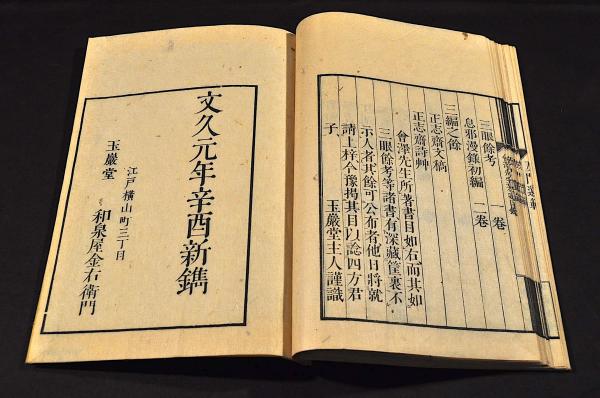 三眼餘考 一卷
息邪漫錄初編 二卷
三編之餘
正志齋文稿
正志齋詩艸
會澤先生所著書目如右而其如
三眼餘考等諸書有深藏筐裏不
示人者其餘可公布者他日將就
請上梓今豫揭其目以諗四方君
子 玉巖堂主人謹識
文久元年辛酉新鐫
江戸橫山町三丁目
玉巖堂 和泉屋金右衛門